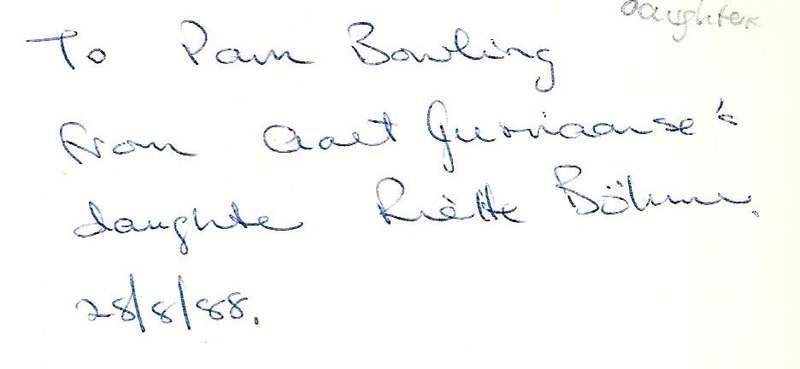 daughter
To Pam Bowling
from Aart Jurriaanse's
daughte Riëtte Böhme.
28/8/88.